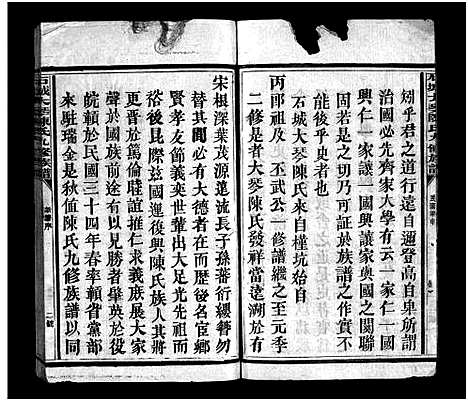 矧乎君之道行遠自邇登高自卑所謂
治國必先齊家大學有云一家仁一國
興仁一家讓一國興讓家與國之關聯
固若是之切乃可証於族譜之作實不
能後乎史者也
石城大琴陳氏來自橦坑始自
丙郎祖及 丕武公一修譜繼之至元季
二修是者大琴陳氏發祥當遠溯於有
宋根深葉茂源遠流長子孫蕃衍纓簪勿
替其間必有大德者在而歷後名宦鄉
賢孝友節義奕世輩出大足光先祖而
裕後昆際茲國運復興陳氏族人其將
晋於篤倫睦誼推仁求義族展大家
聲於國族前途有以見勝者肇英於役
皖贛於民國三十四年春率贛省黨部
來駐瑞金是秋值陳氏九修族譜以同
石城大琴陳氏九修族譜